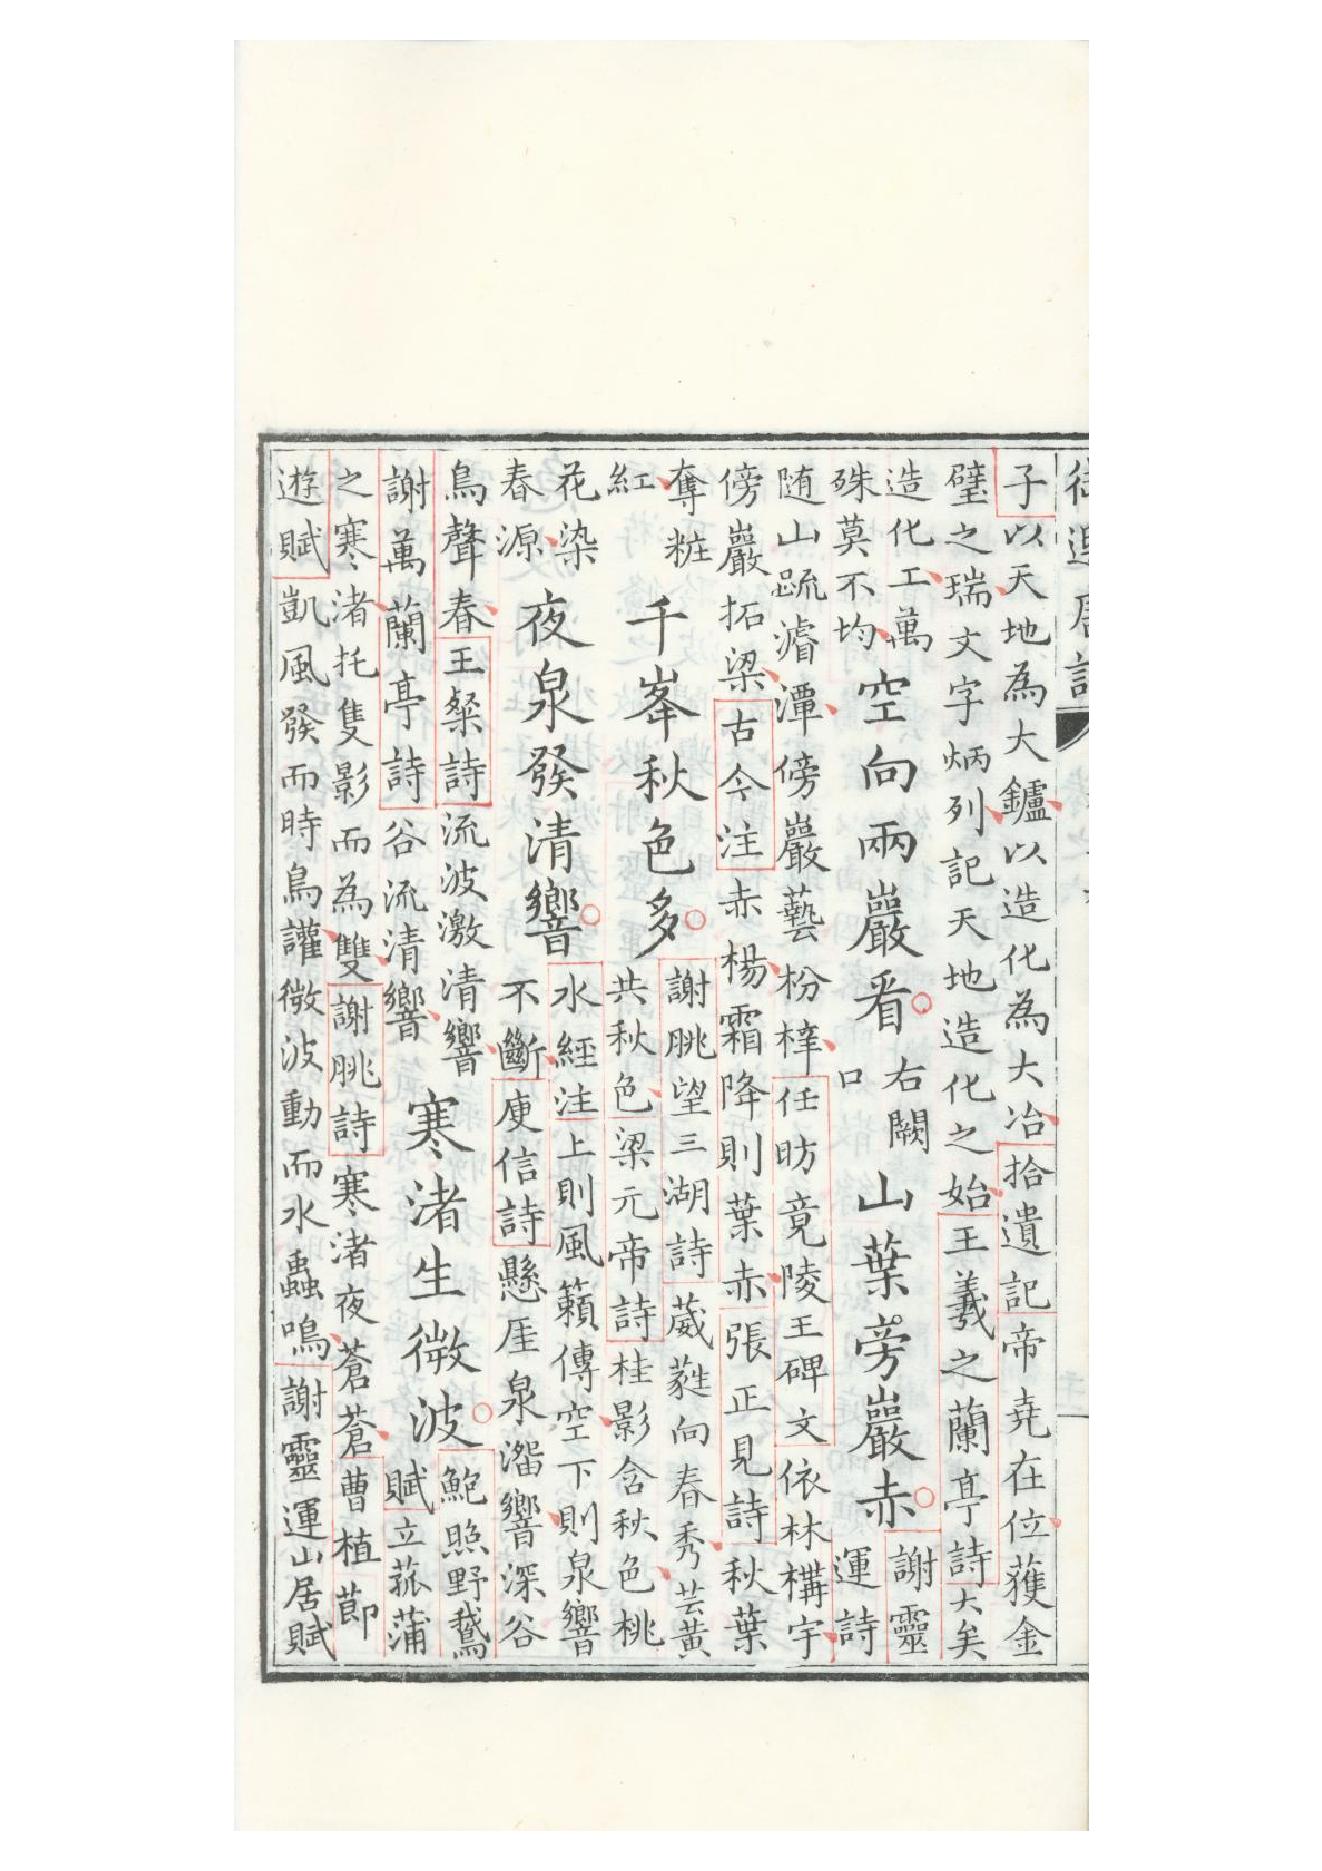 御選唐詩
子以天地為大鑪以造化為大冶拾遺記帝堯在位獲金
璧之瑞文字炳列記天地造化之始王羲之蘭亭詩大矣
造化工萬
殊莫不均
空向兩巖看
右闕
口
山葉旁巖赤
謝靈
運詩
随山䟽濬潭傍巖藝枌梓任昉竟陵王碑文依林構宇
傍巖拓梁古今注赤楊霜降則葉赤張正見詩秋葉
奪粧
紅
千峯秋色多
謝朓望三湖詩葳蕤向春秀芸黃
共秋色梁元帝詩桂影含秋色桃
花染
春源
夜泉發清響
水經注上則風籟傳空下則泉響
不斷庾信詩懸厓泉溜響深谷
鳥聲春王粲詩流波激清響
謝萬蘭亭詩谷流清響
寒渚生微波
鮑照野鵝
賦立菰蒲
之寒渚托隻影而為雙謝朓詩寒渚夜蒼蒼曹植節
遊賦凱風發而時鳥讙微波動而水蟲鳴謝靈運山居賦